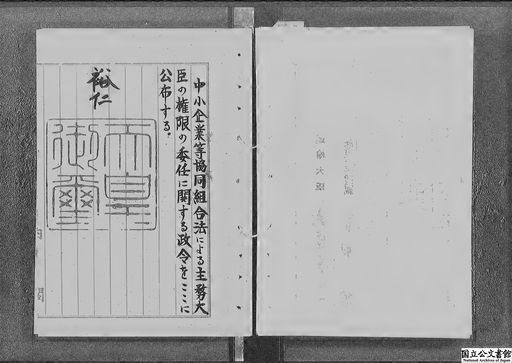 中小企業等協同組合法による主務大
臣の権限の委任に関する政令をここに
公布する。
裕仁
天皇
御璽
国立公文書館
National Archives of Japan